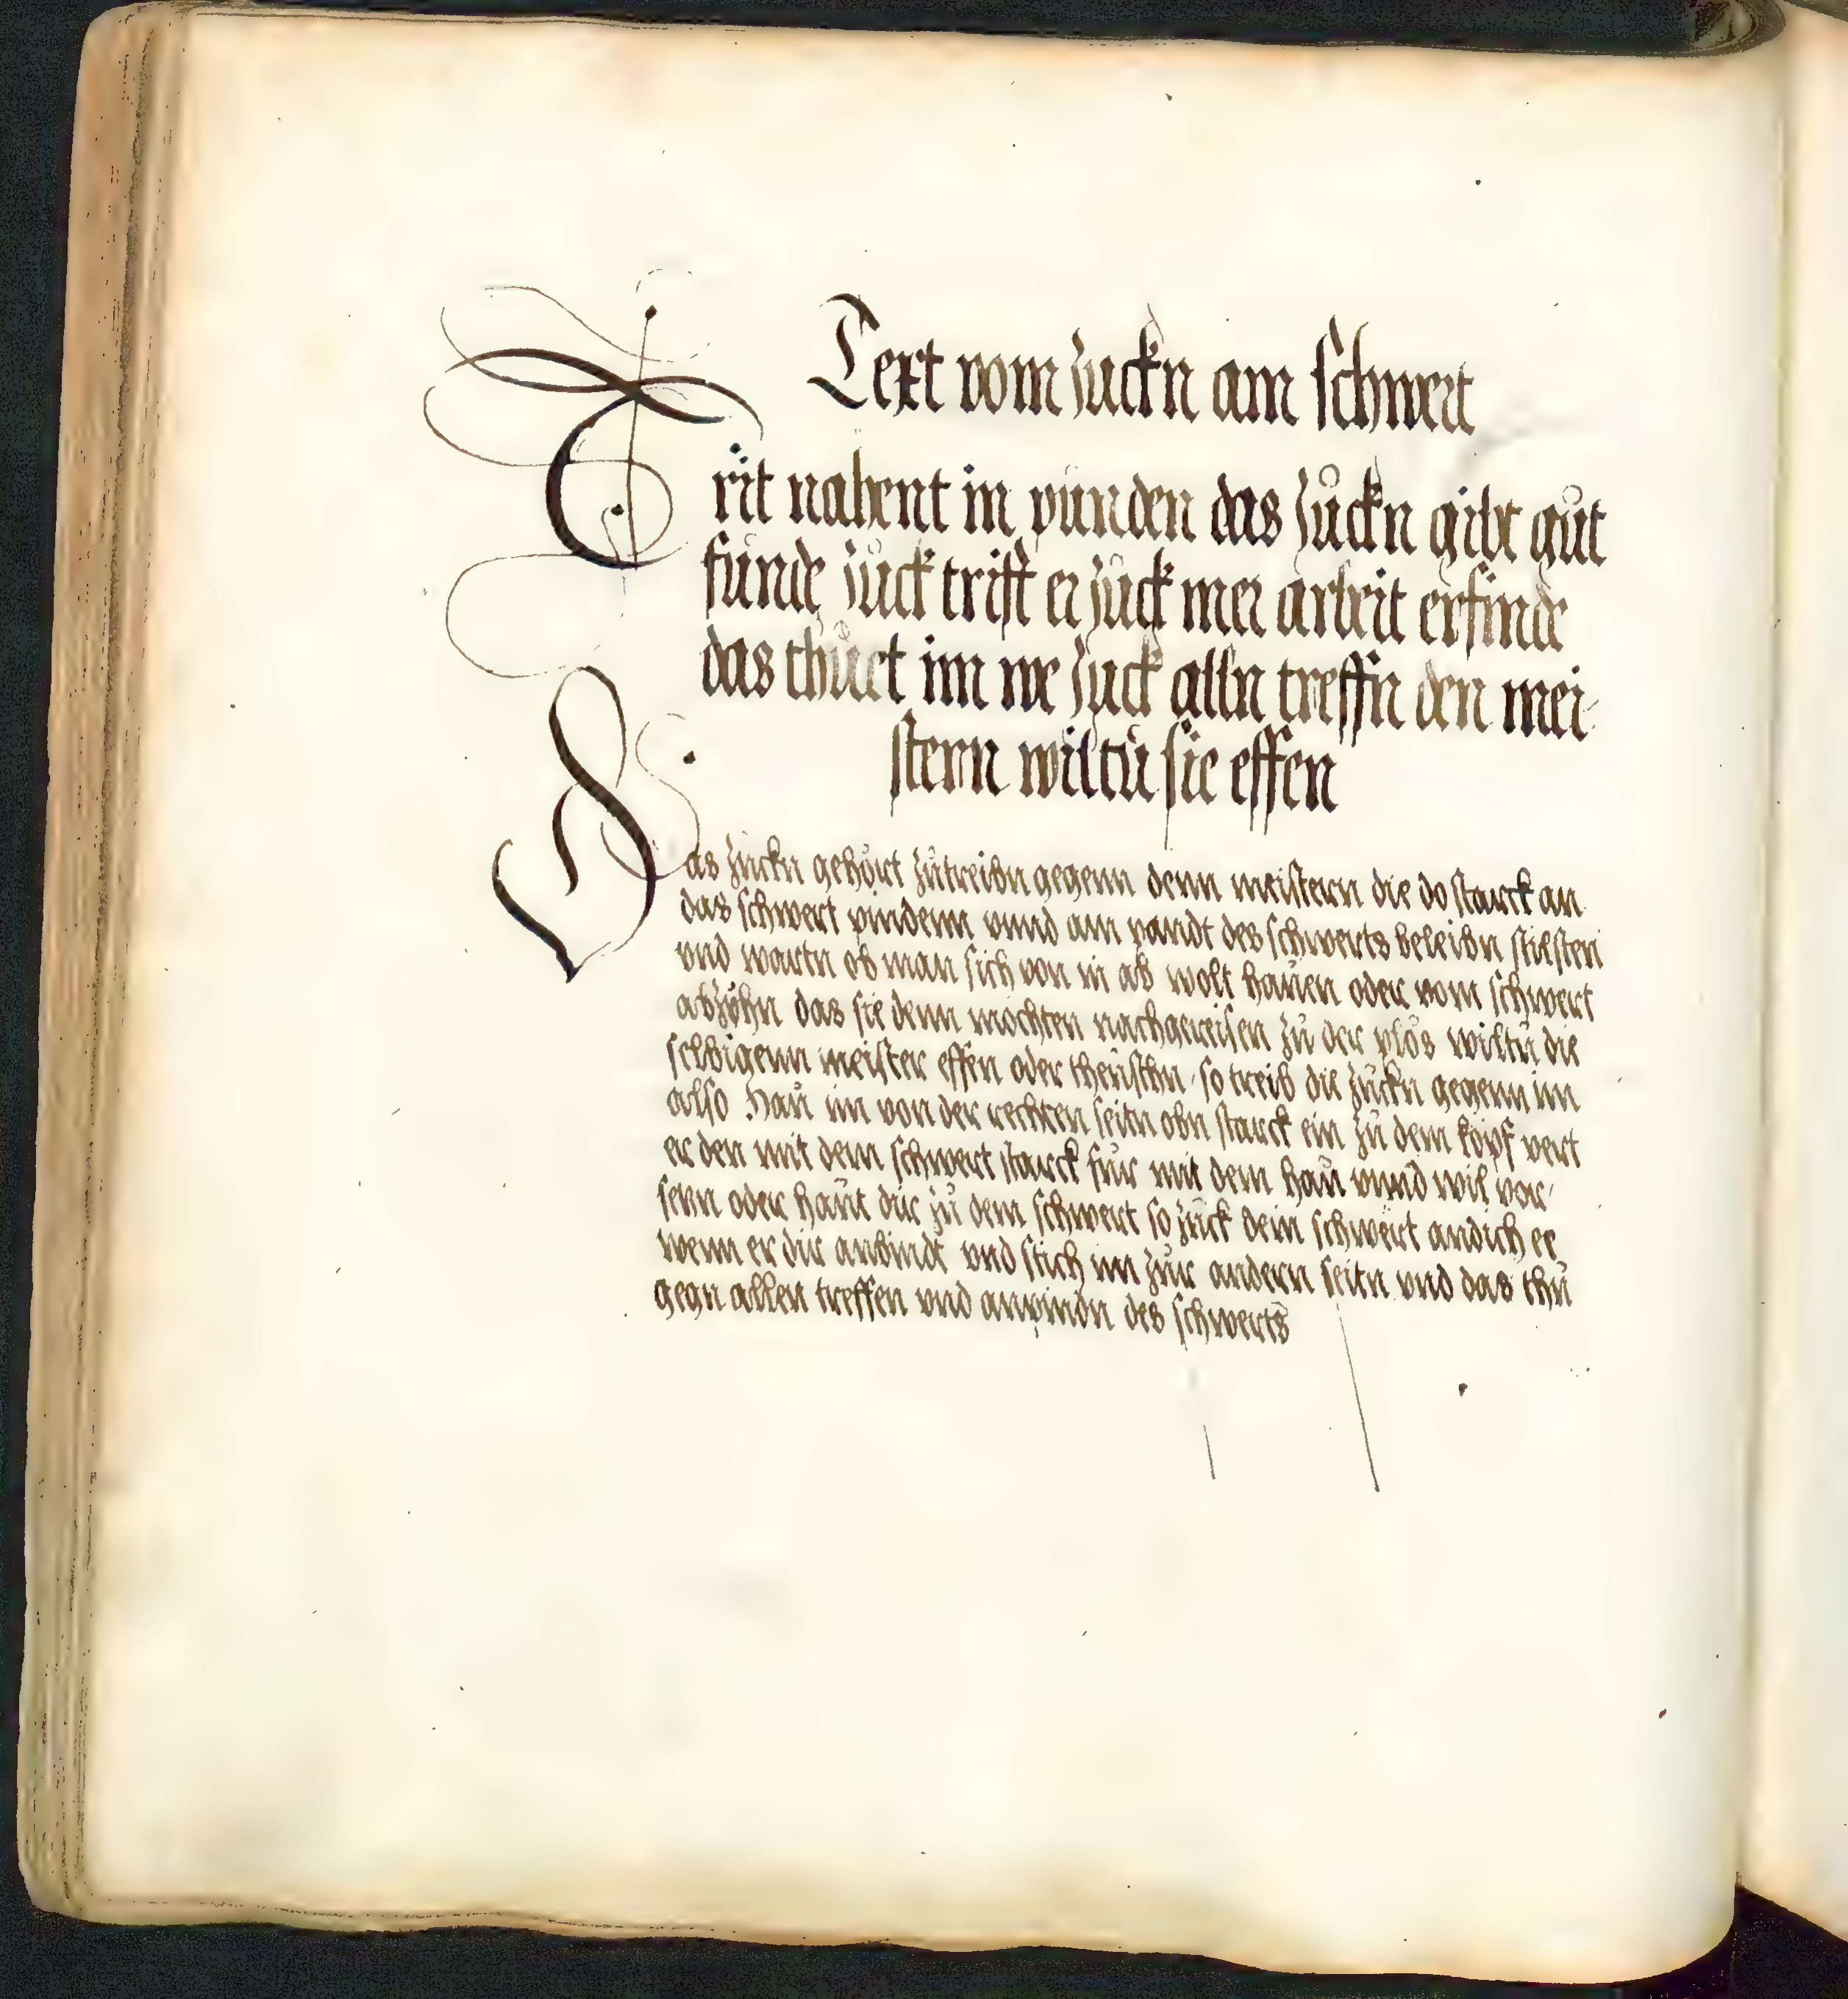 Text vom zuckn am schwert
Trit nahent in punden das zuckn gibt gut
funde zuck trift er zuck mer arbeit erfinde
das thuet im we zuck alln treffn den mei-
stern wiltu sie effen
Das zuckn gehort zutreibn gegenn denn meistern die do starck an
das schwert pindenn vnnd am pandt des schwerts beleibn stilsten
vnd wartn ob man sich von in ab wolt hauen oder vom schwert
abzyhn das sie denn mochten nachgereisen zu der plos wiltu die
selbigenn meister effen oder theusthn so treib die zuckn gegenn im
also Hau im von der rechten seitn obn starck ein zu dem kopf vert
er den mit dem schwert starck fur mit dem hau vnnd wil vor
senn oder haut dir zu dem schwert so zuck dein schwert andich ee
wenn er dir anbindt vnd stich im zur andern seitn vnd das thu
gegn allen treffen vnd anpindn des schwerts